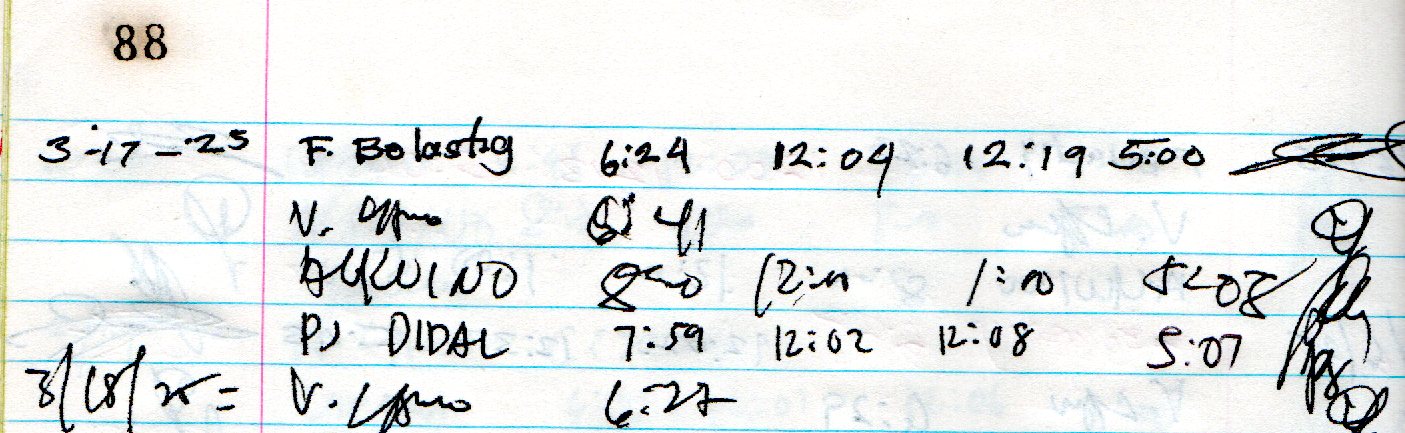 88
3-17-25 F. Bolastig 6:24 12:04 12:19 5:00
V. 6:41
AQUINO 8:00 12:00 1:00 5:08
PJ DIDAL 7:59 12:02 12:08 5:07
3/18/25 = V. 6:27